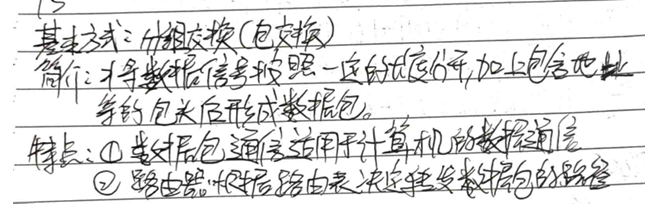 基本方式：分组交换(包交换)
简介：将数据信号按照一定的长度分开,加上包含地址
等的包头后形成数据包。
特点：① 数据包通信适用于计算机的数据通信
② 路由器根据路由表决定转发数据包的路径